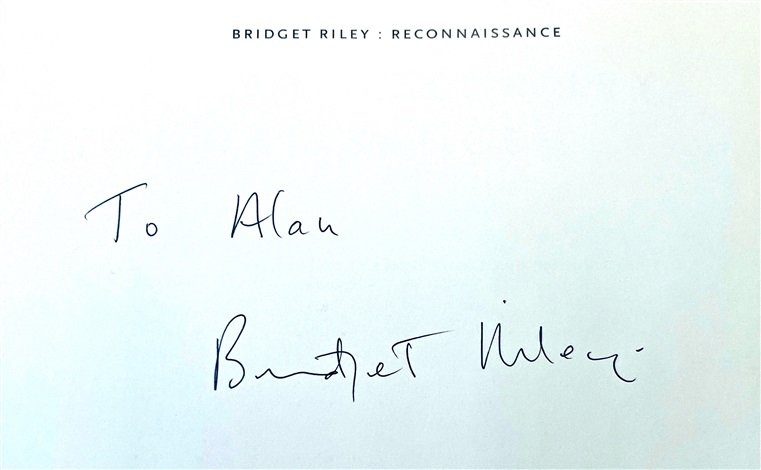 BRIDGET RILEY : RECONNAISSANCE
To Alan
Bridget Riley